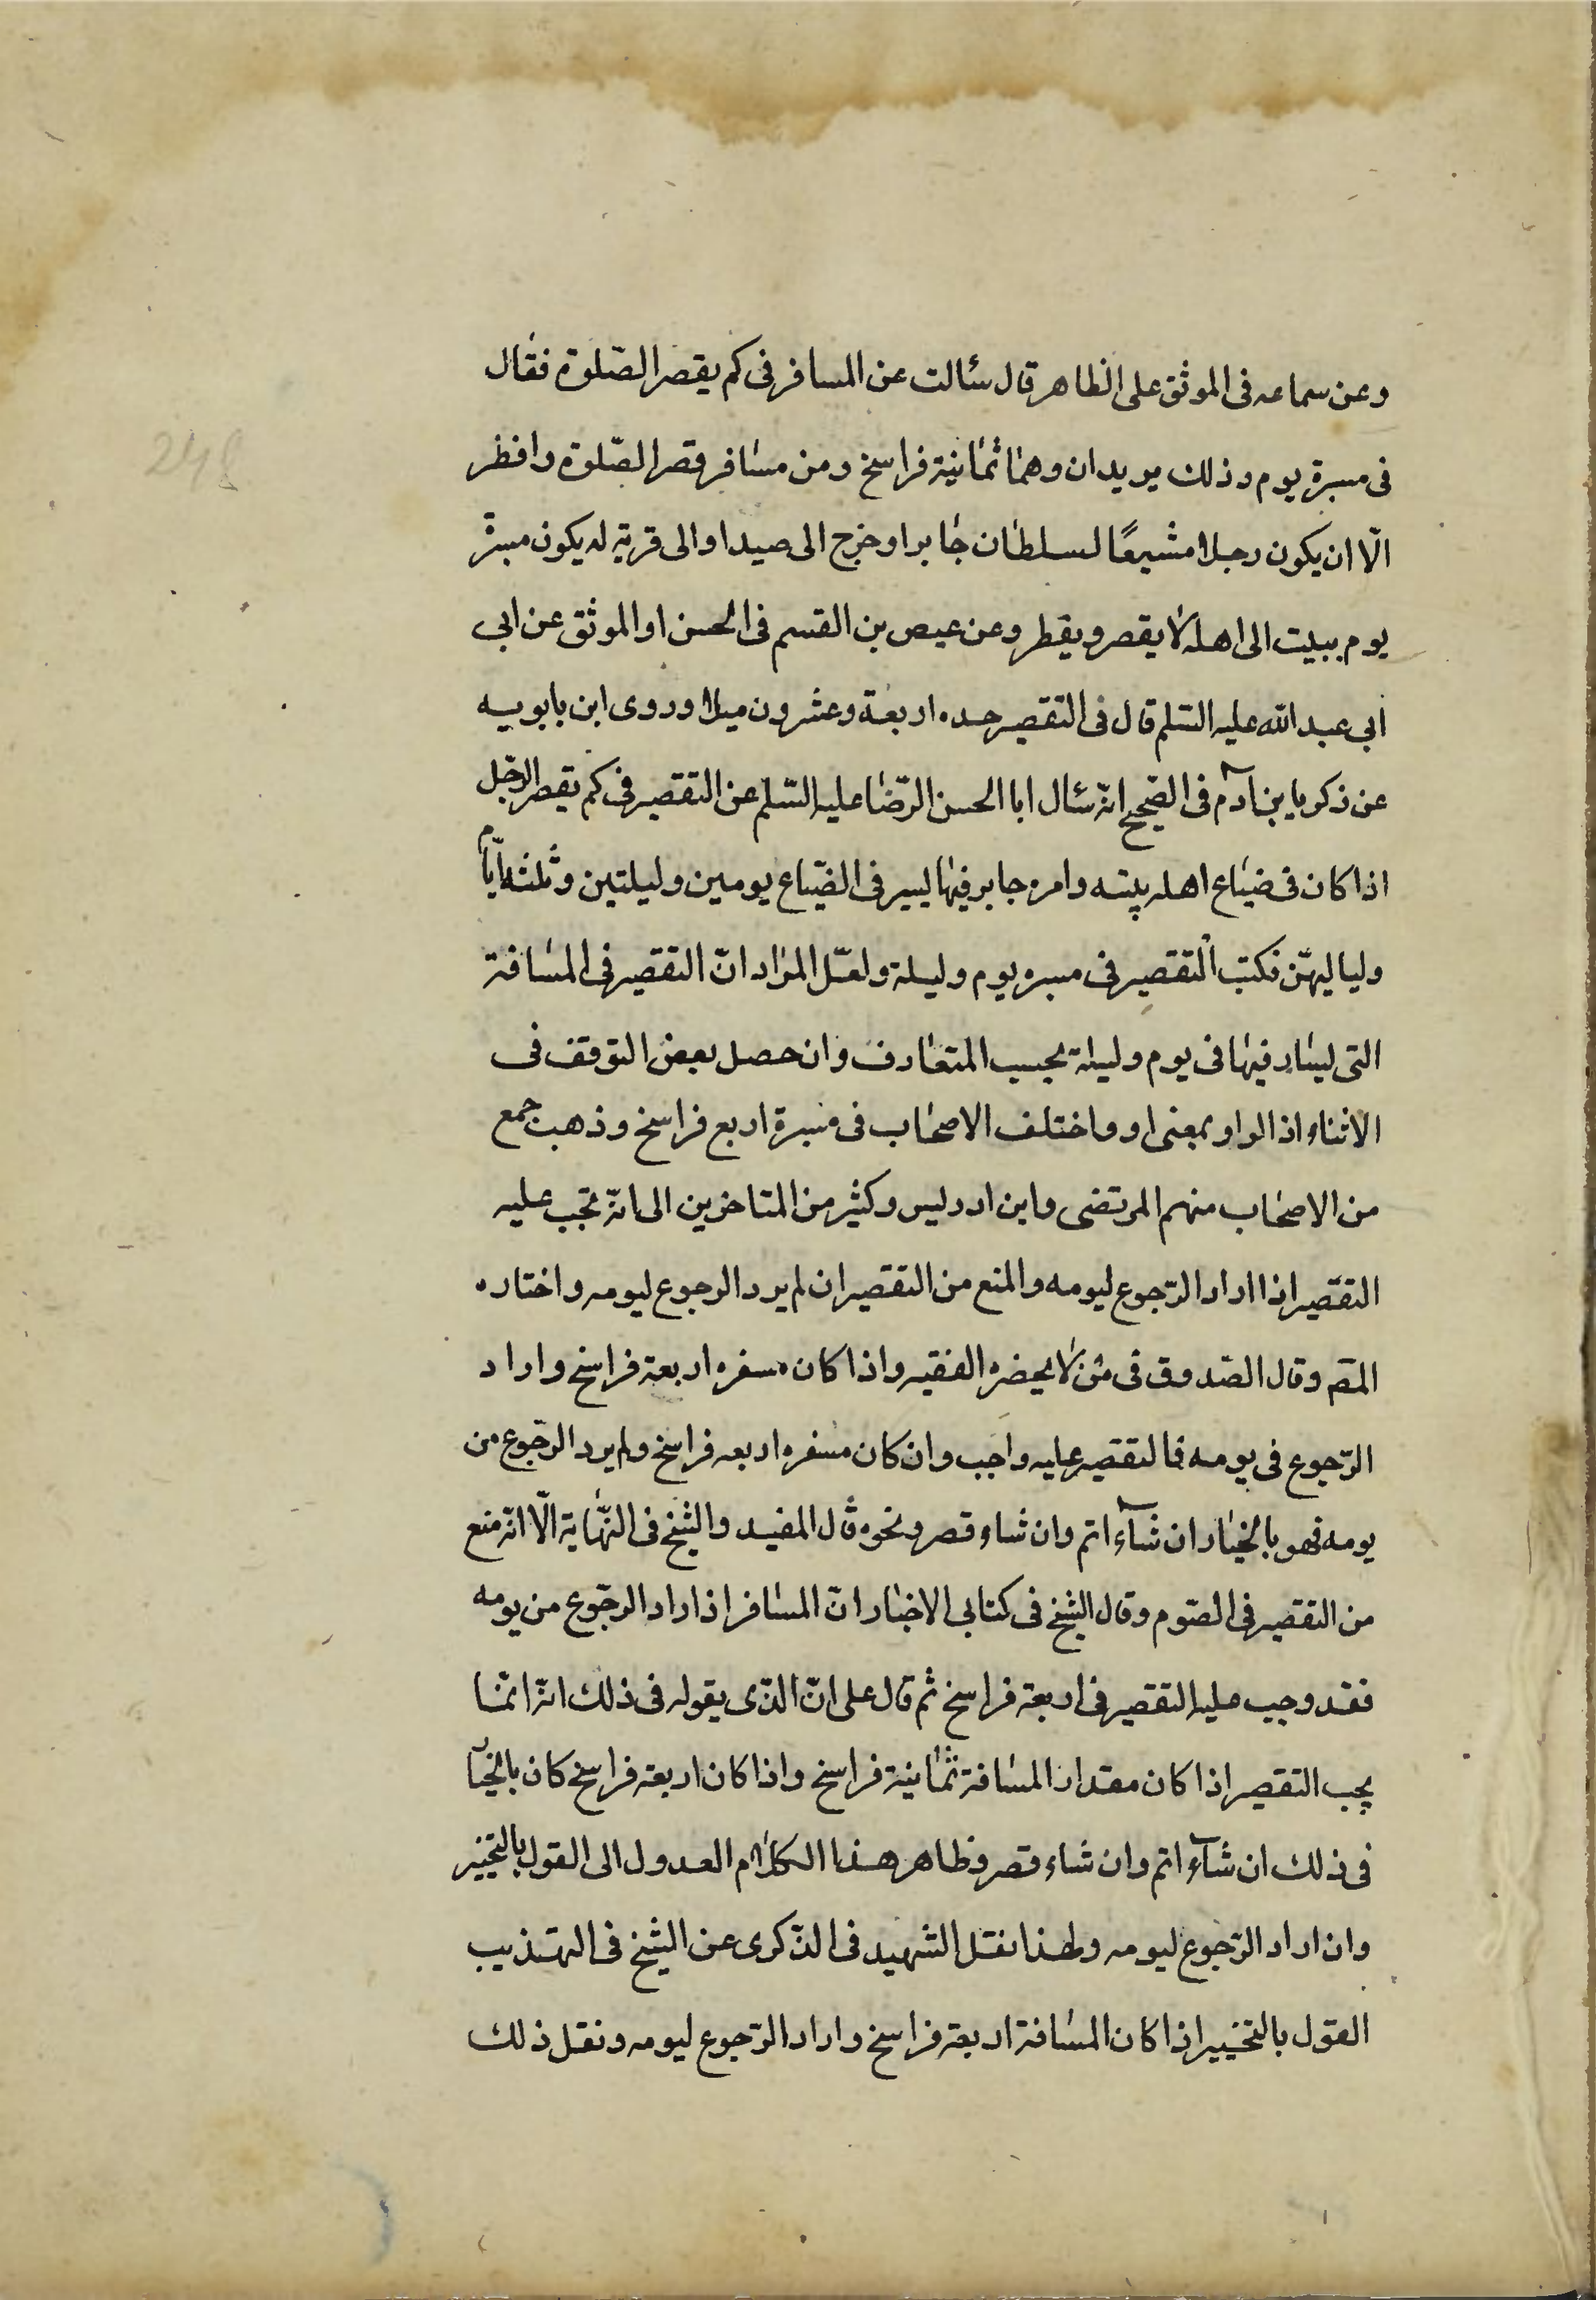 وعن سماعه فى الموثق على الظاهر قال سئالت عن المسافر فى كم يقصر الصّلوة فقال
فى مسيرة يوم وذلك بريدان وهما ثمانية فراسخ ومن سافر قصر الصّلوة وافطر
الّا ان يكون رجلا مشيعًا لسلطان جابر او خرج الى صيد او الى قرية له يكون مسيرة
يوم يبيت الى اهله لا يقصر ويفطر وعن عيص بن القسم فى الحسن او الموثق عن ابى
ابى عبد الله عليه السّلم قال فى التقصير حده اربعة وعشرون ميلا وروى ابن بابويه
عن زكريا بن ادم فى الصّحيح انه سئال ابا الحسن الرّضا عليه السّلم عن التقصير فى كم يقصر الرّجل
اذا كان فى ضياع اهل بيته وامره جابر فيها يسير فى الضّياع يومين وليلتين وثلثه ايّام
ولياليهنّ فكتب التقصير فى مسيره يوم وليلة ولعلّ المراد انّ التقصير فى المسافة
التى ليسار فيها فى يوم وليلة بحسب المتعارف وان حصل بعض التوقف فى
الاثناء اذ الواو بمعنى او واختلف الاصحاب فى مسيرة اربع فراسخ وذهب جمع
من الاصحاب منهم المرتضى وابن ادريس وكثير من المتاخرين الى انه يجب عليه
التقصير اذا اراد الرّجوع ليومه والمنع من التقصير ان لم يرد الرجوع ليومه واختاره
المصّ وقال الصّدوق فى من لا يحضره الفقيه واذا كان سفره اربعة فراسخ واراد
الرّجوع فى يومه فالتقصير عليه واجب وان كان سفره اربعه فراسخ ولم يرد الرّجوع من
يومه فهو بالخيار ان شآء اتم وان شاء قصر ونحوه قال المفيد والشيخ فى النّهاية الّا انه منع
من التقصير فى الصّوم وقال الشيخ فى كتابى الاخبار انّ المسافر اذا اراد الرّجوع من يومه
فقد وجب عليه التقصير فى اربعة فراسخ ثم قال على انّ الذّى يقوله فى ذلك انه انمّا
يجب التقصير اذا كان مقدار المسافة ثمانية فراسخ واذا كان اربعة فراسخ كان بالخيار
فى ذلك ان شآء اتم وان شاء قصر وظاهر هذا الكلام العدول الى القول بالتخيير
وان اراد الرّجوع ليومه ولهذا نقل الشهيد فى الذّكرى عن الشيخ فى التهذيب
القول بالتخيير اذا كان المسافة اربعة فراسخ واراد الرّجوع ليومه ونقل ذلك